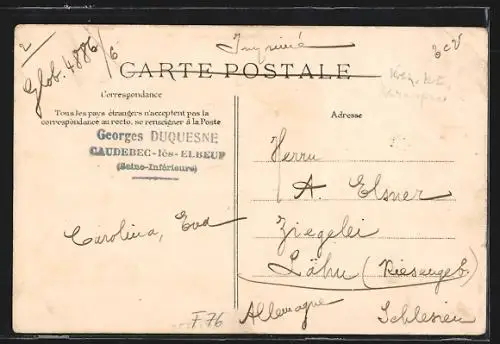 2
Glob. 4886/6
Imprimé
CARTE POSTALE
Correspondance
Tous les pays étrangers n'acceptent pas la
correspondance au recto, se renseigner à la Poste
Georges DUQUESNE
CAUDEBEC-lès-ELBEUF
(Seine-Inférieure)
Carolina, Eva
F. 76
Adresse
Herrn
A. Elsner
Ziegelei
Lähn (Riesengeb.)
Allemagne Schlesien